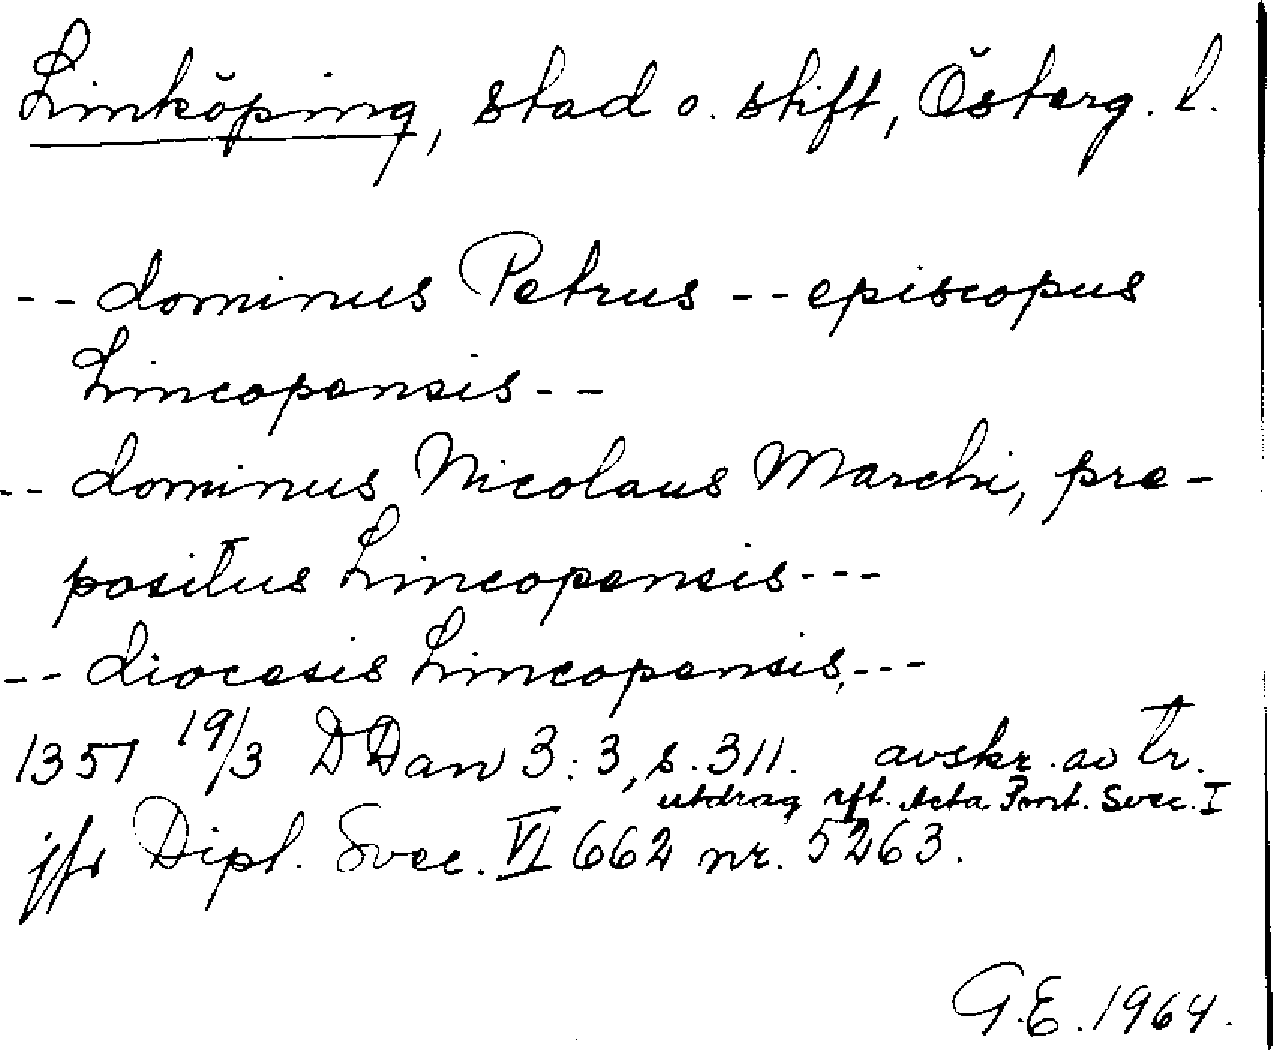 Linköping, stad o. stift, Österg. l.
-- dominus Petrus -- episcopus
Lincopensis --
-- dominus Nicolaus Marchi, pre-
positus Lincopensis ---
-- diocesis Lincopensis, ---
1351 19/3 DDan 3:3, s. 311. avskr. av tr.
utdrag eft. Acta Pont. Svec. I
jfr Dipl. Svec. VI 662 nr. 5263.
G.E. 1964.